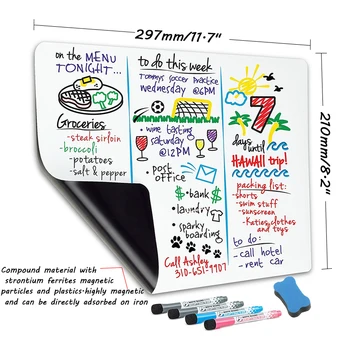 297mm/11.7"
210mm/8.2"
on the MENU
TONIGHT...
Groceries
- steak sirloin
- broccoli
- potatoes
- salt & pepper
to do this week...
Tommys soccer practice
wednesday @6PM
• wine tasting
saturday
@12PM
• post
office
• bank
• laundry
• sparky
boarding
Call Ashley
310-651-9907
7
days until
HAWAII trip!
packing list:
- shorts
- swim stuff
- sunscreen
- Katies clothes
and toys
to do:
- call hotel
- rent car
Compound material with
strontium ferrites magnetic
particles and plastics-highly magnetic
and can be directly adsorbed on iron